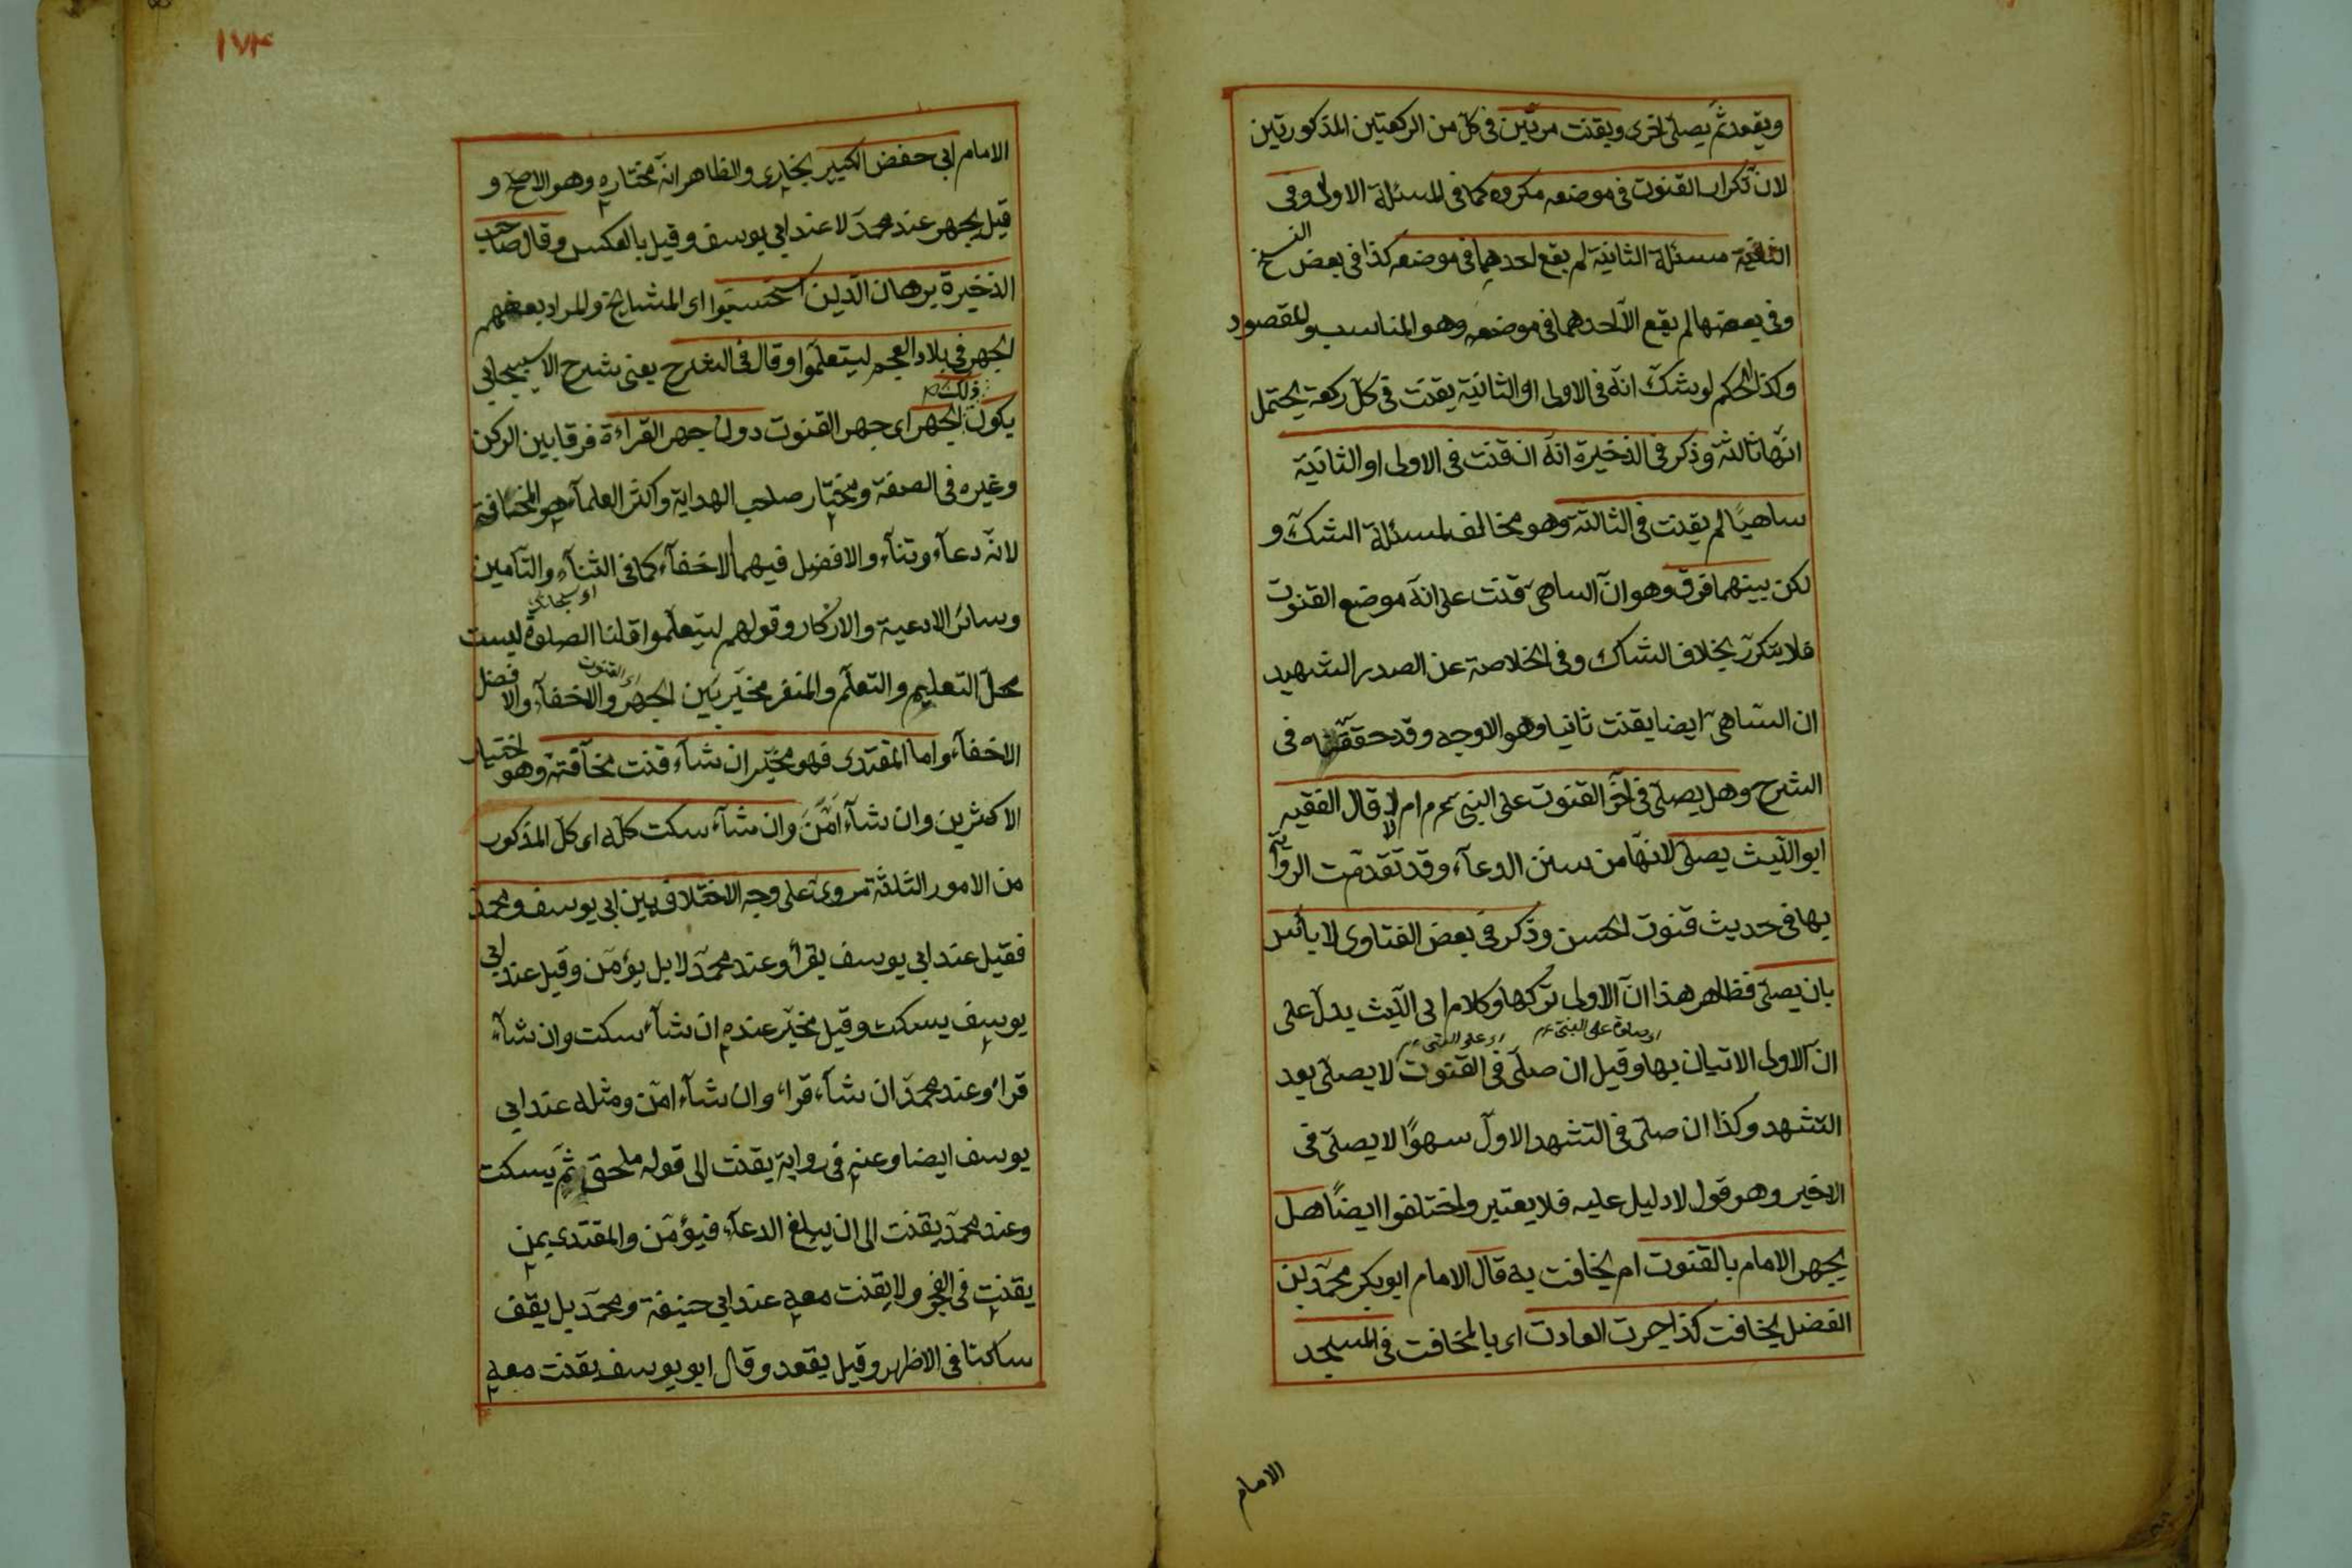 ويقعد ثم يصلى اخرى ويقنت مرتين فى كل من الركعتين المذكورتين
لان تكرار القنوت فى موضعه مكروه كما فى المسئلة الاولى وفى
الثانية مسئلة الثانية لم يقع احدهما فى موضعه كذا فى بعض النسخ
وفى بعضها لم يقع الا احدهما فى موضعه وهو المناسب والمقصود
وكذا الحكم لو شك انه فى الاولى او الثانية يقنت فى كل ركعة يحتمل
انها ثالثة وذكر فى الذخيرة انه ان قنت فى الاولى او الثانية
ساهيًا لم يقنت فى الثالثة وهو مخالف لمسئلة الشك و
لكن بينهما فرق وهو ان الساهى قنت على انه موضع القنوت
فلا يتكرر بخلاف الشاك وفى الخلاصة عن الصدر الشهيد
ان الساهى ايضا يقنت ثانيا وهو الاوجه وقد حققناه فى
الشرح وهل يصلى فى آخر القنوت على النبى عم م ام لا قال الفقيه
ابو الليث يصلى لانها من سنن الدعآء وقد تقدمت الرواية
بها فى حديث قنوت الحسن وذكر فى بعض الفتاوى لا بأس
بان يصلى فظاهر هذا ان الاولى تركها وكلام ابى الليث يدل على
اى صلوة على النبى عم اى على النبى عم
ان الاولى الاتيان بها وقيل ان صلى فى القنوت لا يصلى بعد
التشهد وكذا ان صلى فى التشهد الاول سهوًا لا يصلى فى
الاخير وهو قول لا دليل عليه فلا يعتبر واختلفوا ايضًا هل
يجهر الامام بالقنوت ام يخافت به قال الامام ابو بكر محمد بن
الفضل يخافت كذا جرت العادت اى بالمخافت فى المسجد
الامام
١٧٣
الامام ابى حفض الكبير بخارى والظاهر انه مختاره وهو الاصح و
قيل يجهر عند محمد لا عند ابى يوسف وقيل بالعكس وقال صاحب
الذخيرة برهان الدين استحسنوا اى المشايخ والمراد بعضهم
الجهر فى بلاد العجم ليتعلموا وقال فى الشرح يعنى شرح الاسبيجابى
ذلك
يكون الجهر اى جهر القنوت دون جهر القراءة فرقا بين الركن
وغيره فى الصفة ومختار صاحب الهداية واكثر العلمآء هو المخافتة
لانه دعآء وثنآء والافضل فيهما الاخفآء كما فى الثنآء والتآمين
وسائر الادعية والاذكار وقولهم ليتعلموا قلنا الصلوة ليست
اى القنوت
محل التعليم والتعلم والمنفر مخير بين الجهر والاخفآء والافضل
الاخفآء واما المقتدى فهو مخير ان شآء قنت مخآفتة وهو اختيار
الاكثرين وان شآء امّن وان شآء سكت كله اى كل المذكور
من الامور الثلثة مروى على وجه الاختلاف بين ابى يوسف ومحمد
فقيل عند ابى يوسف يقرأ وعند محمد لا بل يؤمن وقيل عند ابى
يوسف يسكت وقيل مخير عنده ان شآء سكت وان شآء
قراء وعند محمد ان شآء قراء وان شآء امن ومثله عند ابى
يوسف ايضا وعنه فى رواية يقنت الى قوله ملحق ثم يسكت
وعند محمد يقنت الى ان يبلغ الدعآء فيؤمن والمقتدى بمن
يقنت فى الفجر ولا يقنت معه عند ابى حنيفة ومحمد بل يقف
ساكتا فى الاظهر وقيل يقعد وقال ابو يوسف يقنت معه